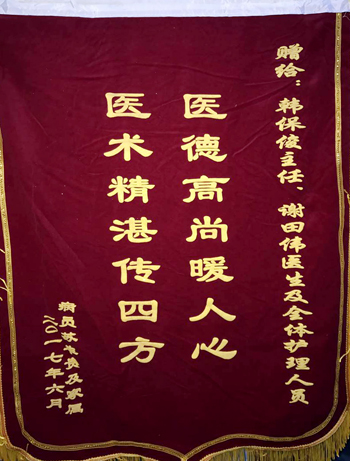 赠给:韩保俊主任、谢田伟医生及全体护理人员
医德高尚暖人心
医术精湛传四方
病员及家属
二〇一七年六月